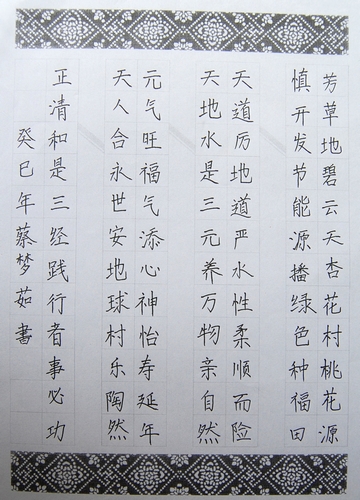 芳草地碧云天杏花村桃花源
慎开发节能源播绿色种福田
天道厉地道严水性柔顺而险
天地水是三元养万物亲自然
元气旺福气添心神怡寿延年
天人合永世安地球村乐陶然
正清和是三经践行者事必功
癸巳年蔡梦茹书